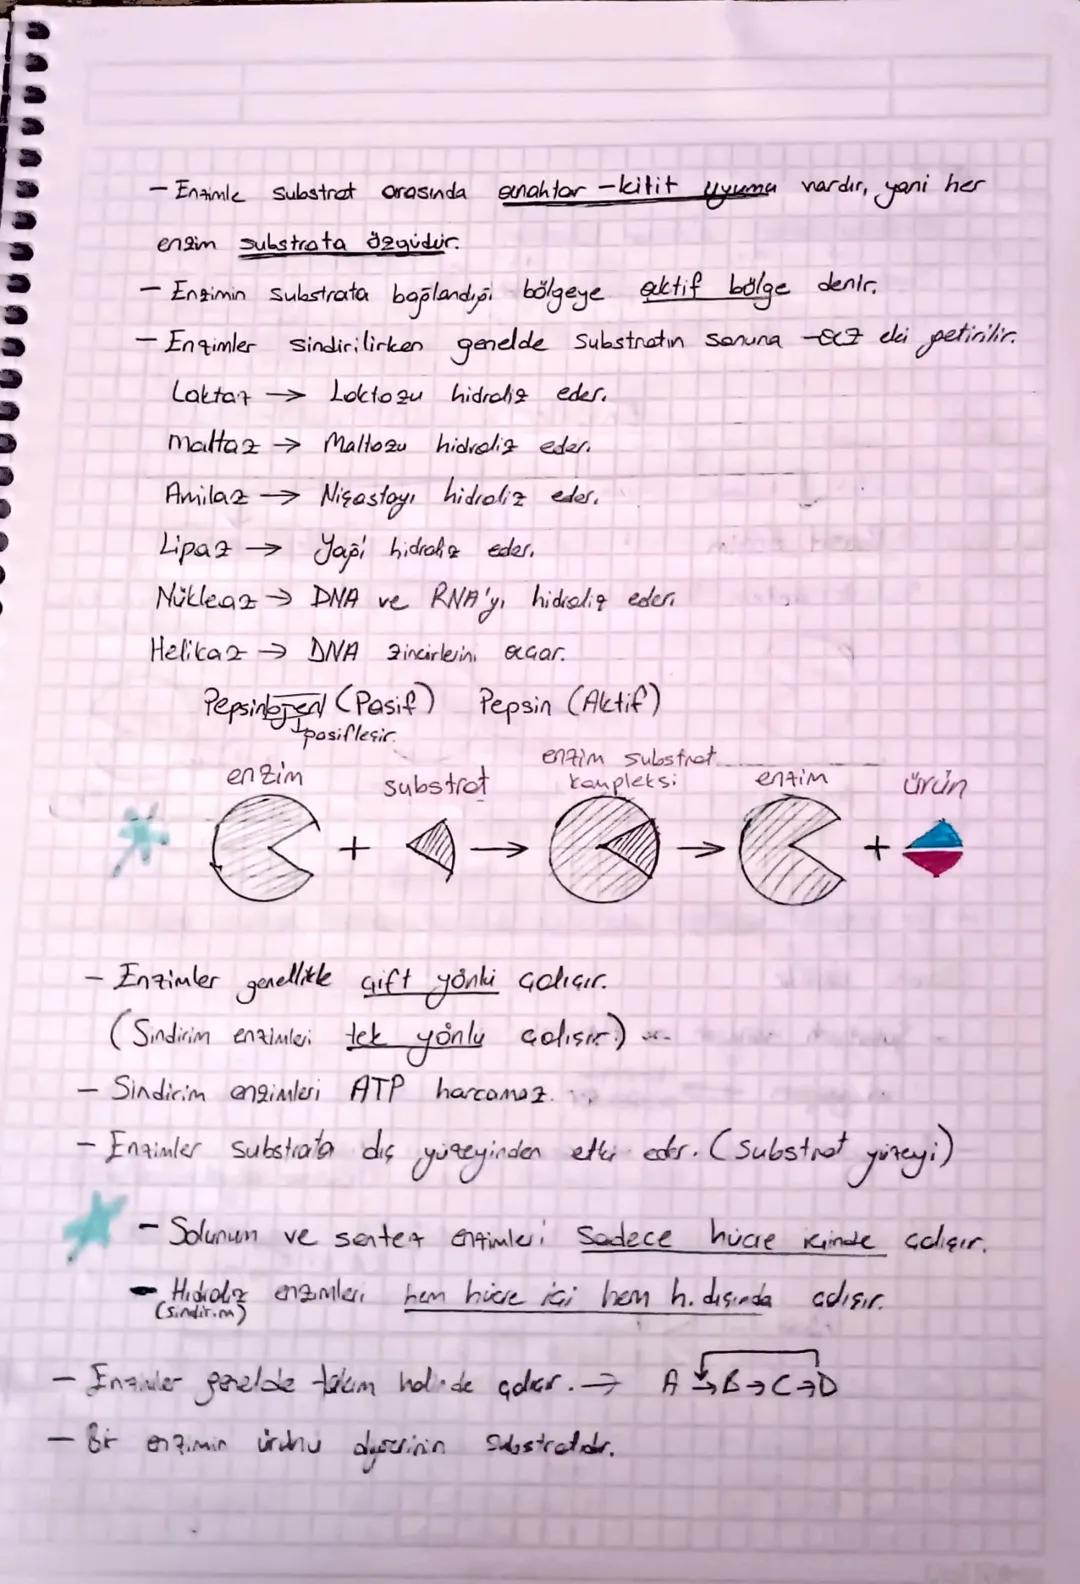 - Enzimle substrat arasında anahtar-kilit uyumu vardır, yani her
enzim substrata özgüdür.
- Enzimin substrata bağlandığı bölgeye aktif bölge denir.
- Enzimler sindirilirken genelde substratın sonuna -az eki getirilir.
Laktaz → Laktozu hidroliz eder.
Maltaz → Maltozu hidroliz eder.
Amilaz → Nişastayı hidroliz eder.
Lipaz → Yağı hidroliz eder.
Nükleaz → DNA ve RNA'yı hidroliz eder.
Helikaz → DNA zincirlerini açar.
Pepsinojen (Pasif) Pepsin (Aktif)
↓pasifleşir.
enzim substrat enzim substrat kompleksi enzim ürün
+ → → +
- Enzimler genellikle çift yönlü çalışır.
(Sindirim enzimleri tek yönlü çalışır.)
- Sindirim enzimleri ATP harcamaz.
- Enzimler substrata dış yüzeyinden etki eder. (Substrat yüzeyi)
- Solunum ve sentez enzimleri sadece hücre içinde çalışır.
- Hidroliz enzimleri hem hücre içi hem h. dışında çalışır.
(sindirim)
- Enzimler genelde takım halinde çalışır. → A → B → C → D
- Bir enzimin ürünü diğerinin substratıdır.